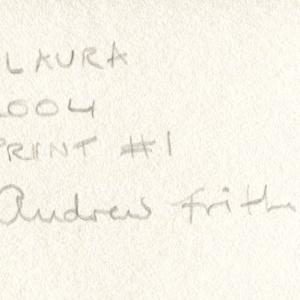 LAURA
2004
PRINT #1
Andrew Frith